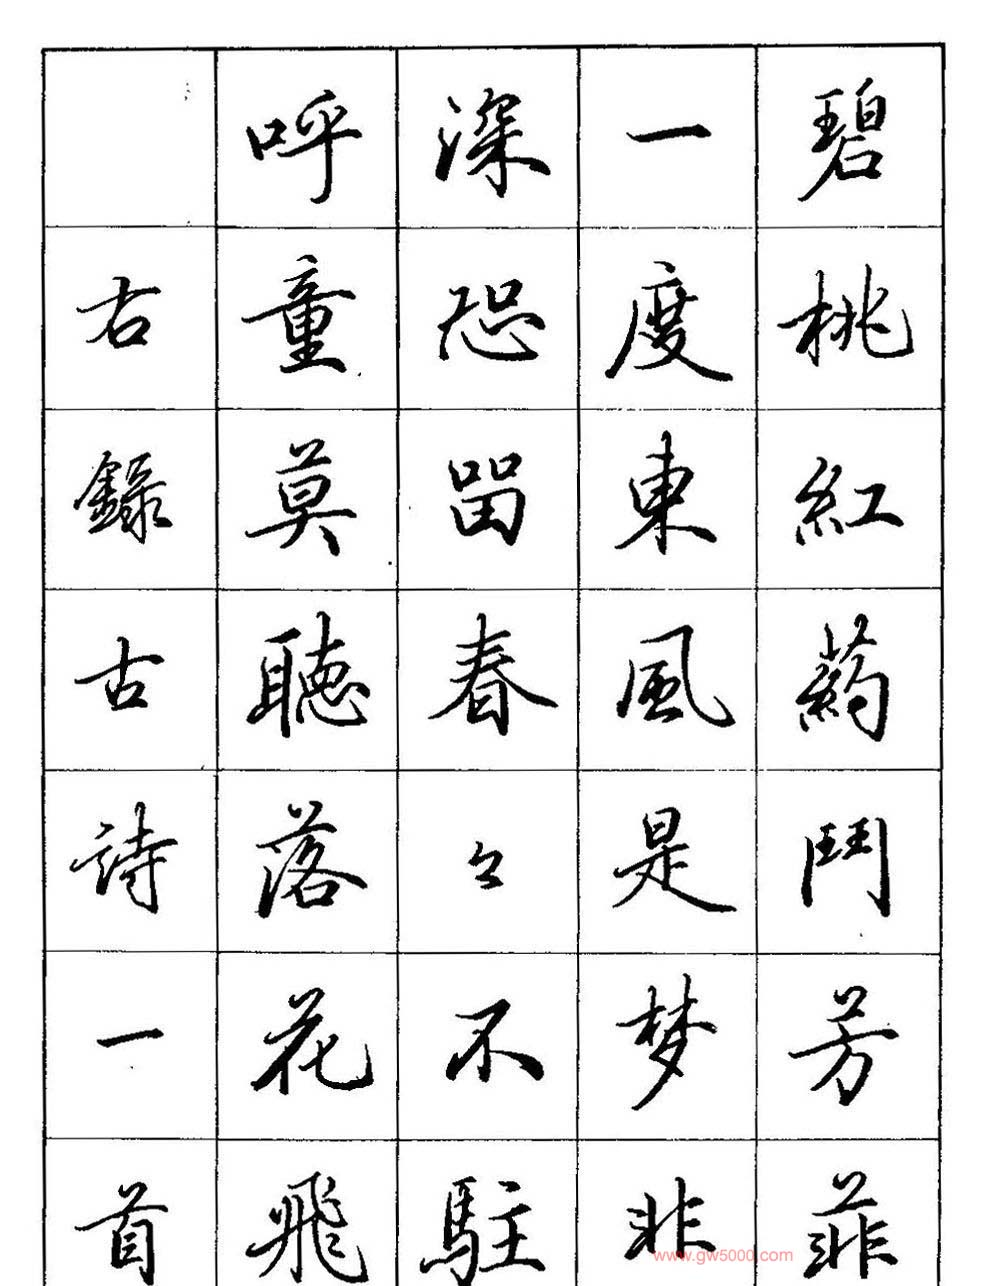 碧桃紅葯鬥芳菲
一度東風是梦非
深恐留春々不駐
呼童莫聽落花飛
右録古詩一首
www.gw5000.com